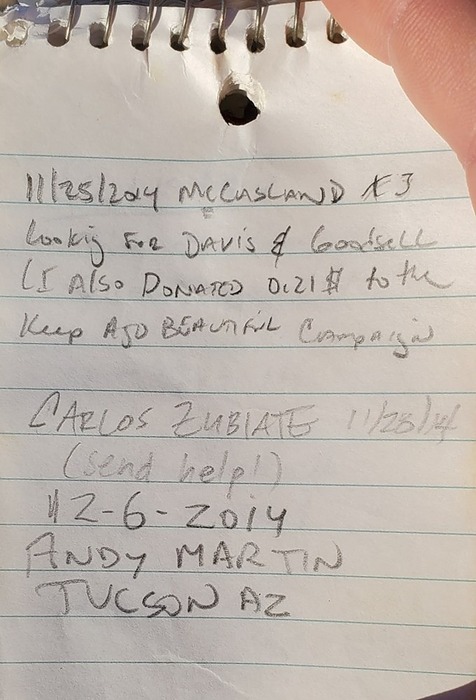 11/25/2014 McCASLAND x3
Looking FOR DAVIS & Goodsell
(I Also DONATED 0.21$ to the
Keep AJO BEAUTIFUL Campaign
CARLOS ZUBIATE 11/28/14
(send help!)
12-6-2014
ANDY MARTIN
TUCSON AZ